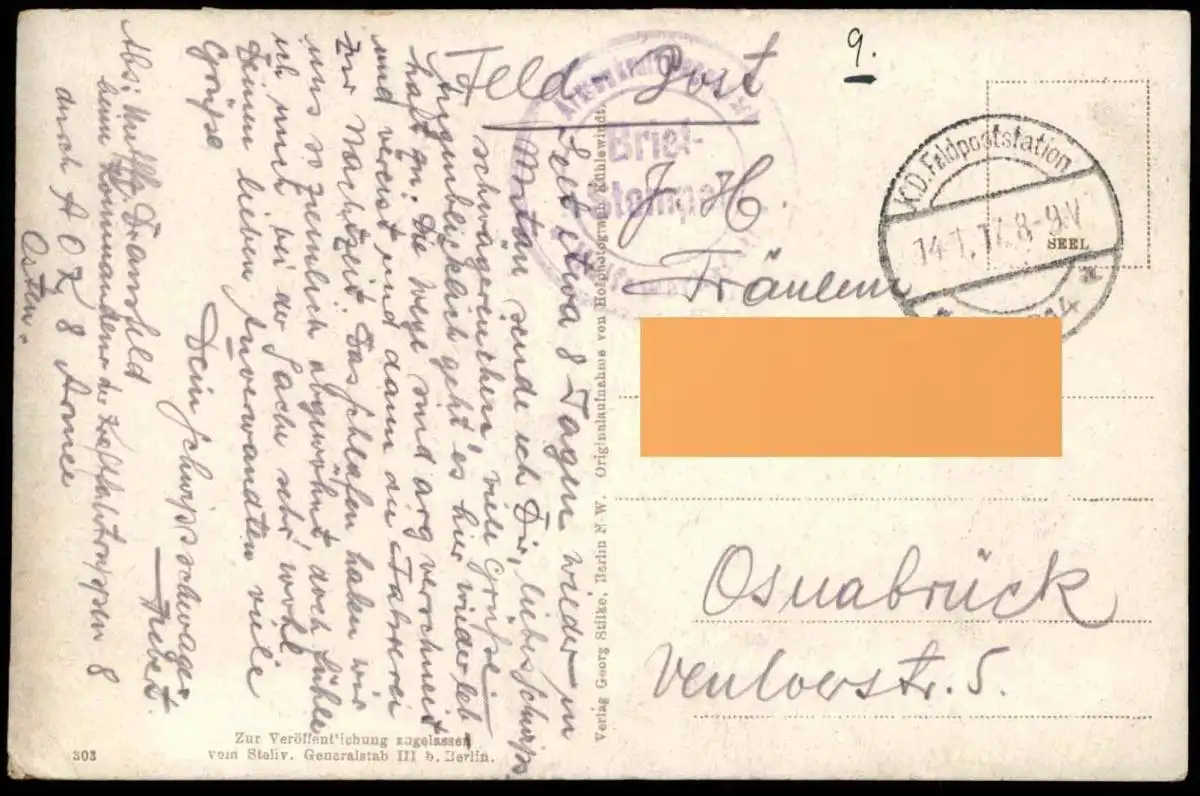 Feld Post
9.
Brief-
Stempel
K.D. Feldpoststation
14.1.17. 8-9V
SEEL
J. H.
Fräulein
Osnabrück
Venloerstr. 5.
Seit etwa 8 Tagen wieder in
Mitau sende ich Dir, liebes Schwipp
schwägerenchen, viele Grüße.
Augenblicklich geht es hier wieder leb
haft zu. Die Wege sind arg verschneit
und vereist und dann die Fahrerei
zur Nachtzeit. Das schlafen haben wir
uns so ziemlich abgewöhnt, doch fühle
ich mich bei der Sache sehr wohl
Deinen lieben Anverwandten viele
Grüße
Dein Schwippschwager
Abs: Dransfeld
beim Kommandeur der Kraftfahrtruppen 8
durch A O K 8
Armee
Osten.
Verlag Georg Stilke, Berlin N.W. Originalaufnahme von Hofphotograph Kühlewindt.
303
Zur Veröffentlichung zugelassen
vom Stellv. Generalstab III b, Berlin.